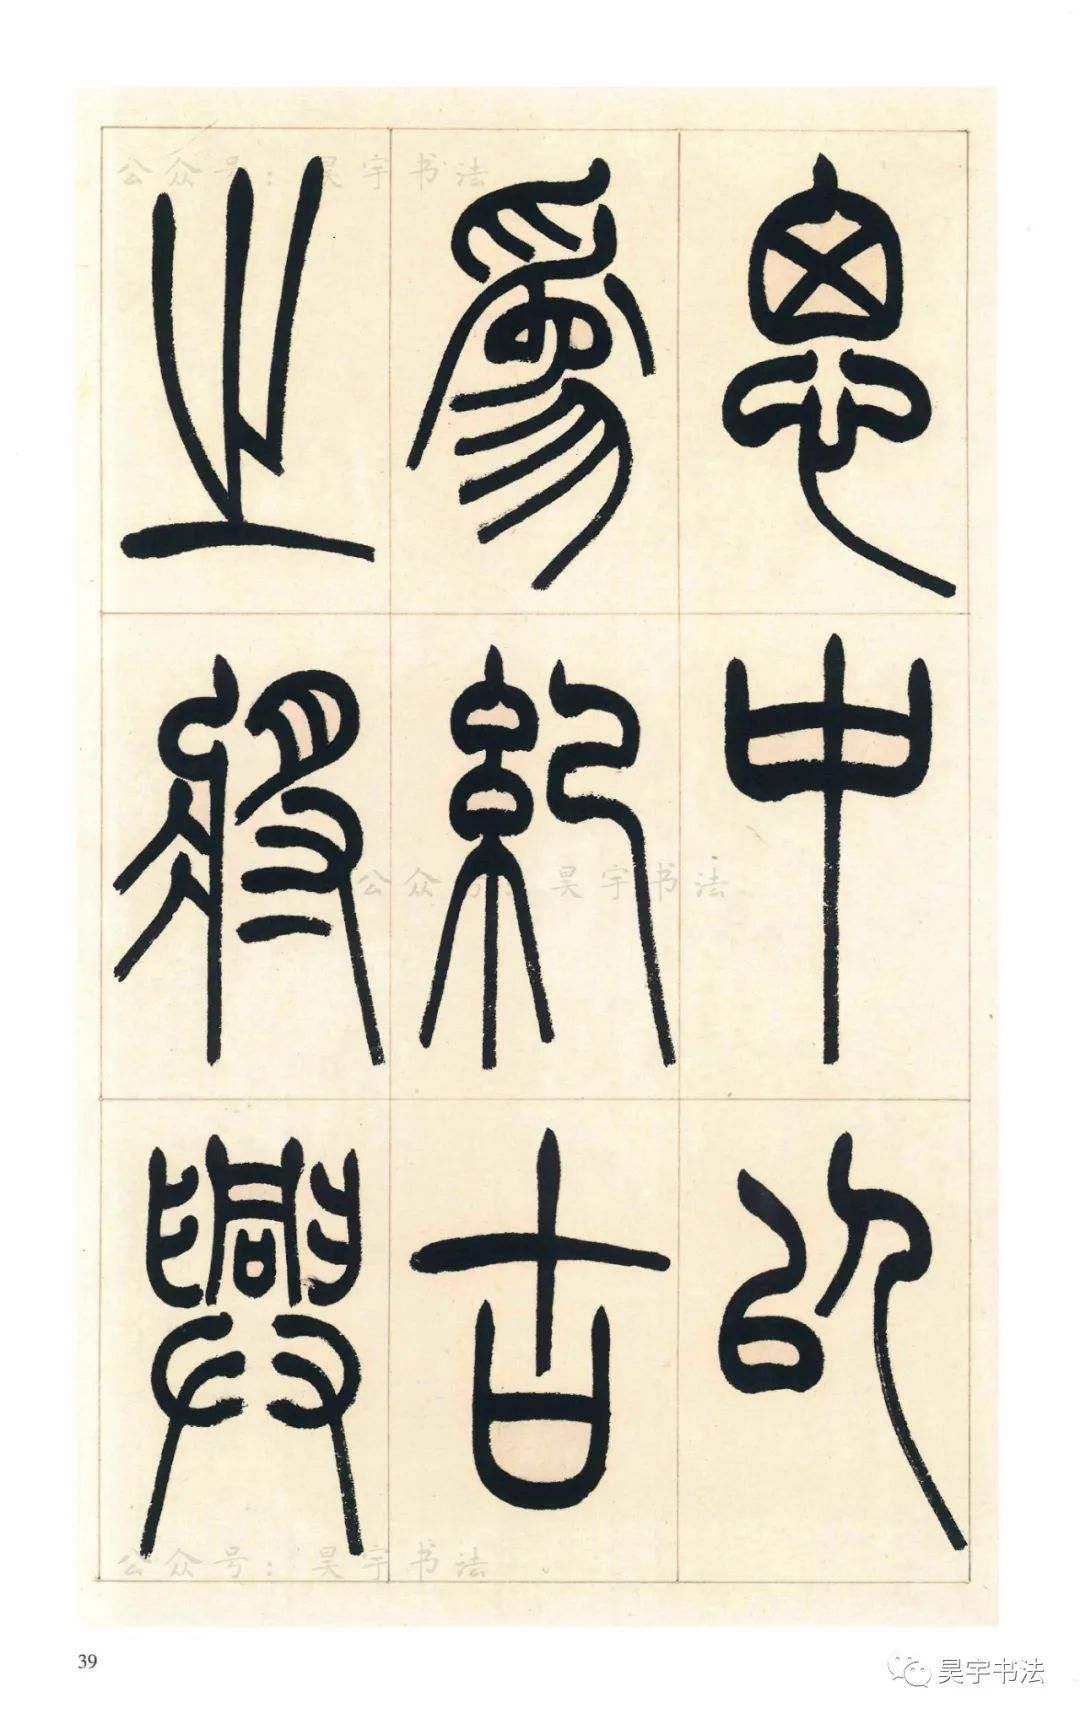 思中㠯
為紀古
之將興
公众号：昊宇书法
公众号：昊宇书法
公众号：昊宇书法
39
昊宇书法